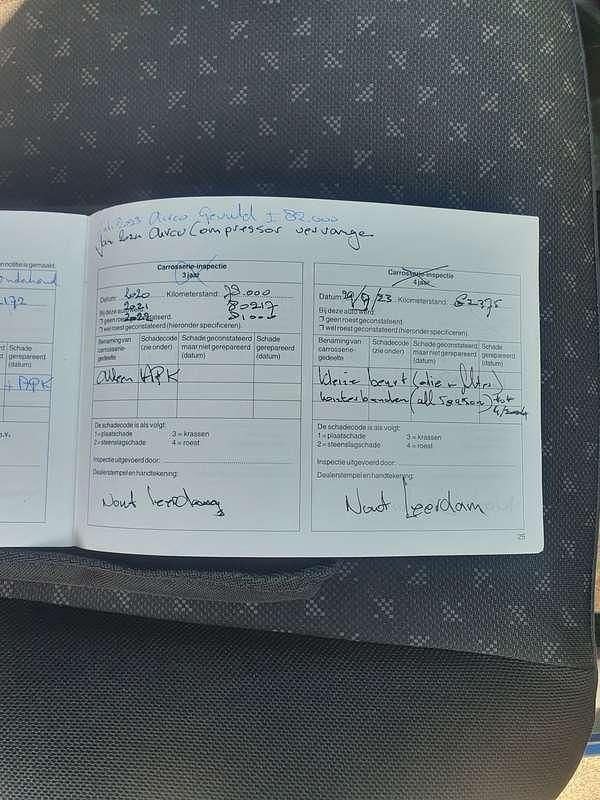 2023 Airco Gevuld ± 82.000
Jan 2024 airco Compressor vervangen
en notitie is gemaakt.
onderhoud
172
Schade
gerepareerd
(datum)
+ APK
Carrosserie-inspectie
3 jaar
Datum: 2020 Kilometerstand: 79.000
2021 80217
Bij deze auto werd:
geen roest geconstateerd.
2022 81001
wel roest geconstateerd (hieronder specificeren).
Benaming van carrosserie-gedeelte
Schadecode (zie onder)
Schade geconstateerd maar niet gerepareerd (datum)
Schade gerepareerd (datum)
alleen APK
De schadecode is als volgt:
1 = plaatschade 3 = krassen
2 = steenslagschade 4 = roest
Inspectie uitgevoerd door:
Dealerstempel en handtekening:
Nout Leerdam
Carrosserie-inspectie
4 jaar
Datum 29/9/23 Kilometerstand: 82375
Bij deze auto werd:
geen roest geconstateerd.
wel roest geconstateerd (hieronder specificeren).
Benaming van carrosserie-gedeelte
Schadecode (zie onder)
Schade geconstateerd maar niet gerepareerd (datum)
Schade gerepareerd (datum)
kleine beurt (olie + filter)
winterbanden (all season) tot
4/2024
De schadecode is als volgt:
1 = plaatschade 3 = krassen
2 = steenslagschade 4 = roest
Inspectie uitgevoerd door:
Dealerstempel en handtekening:
Nout Leerdam
25